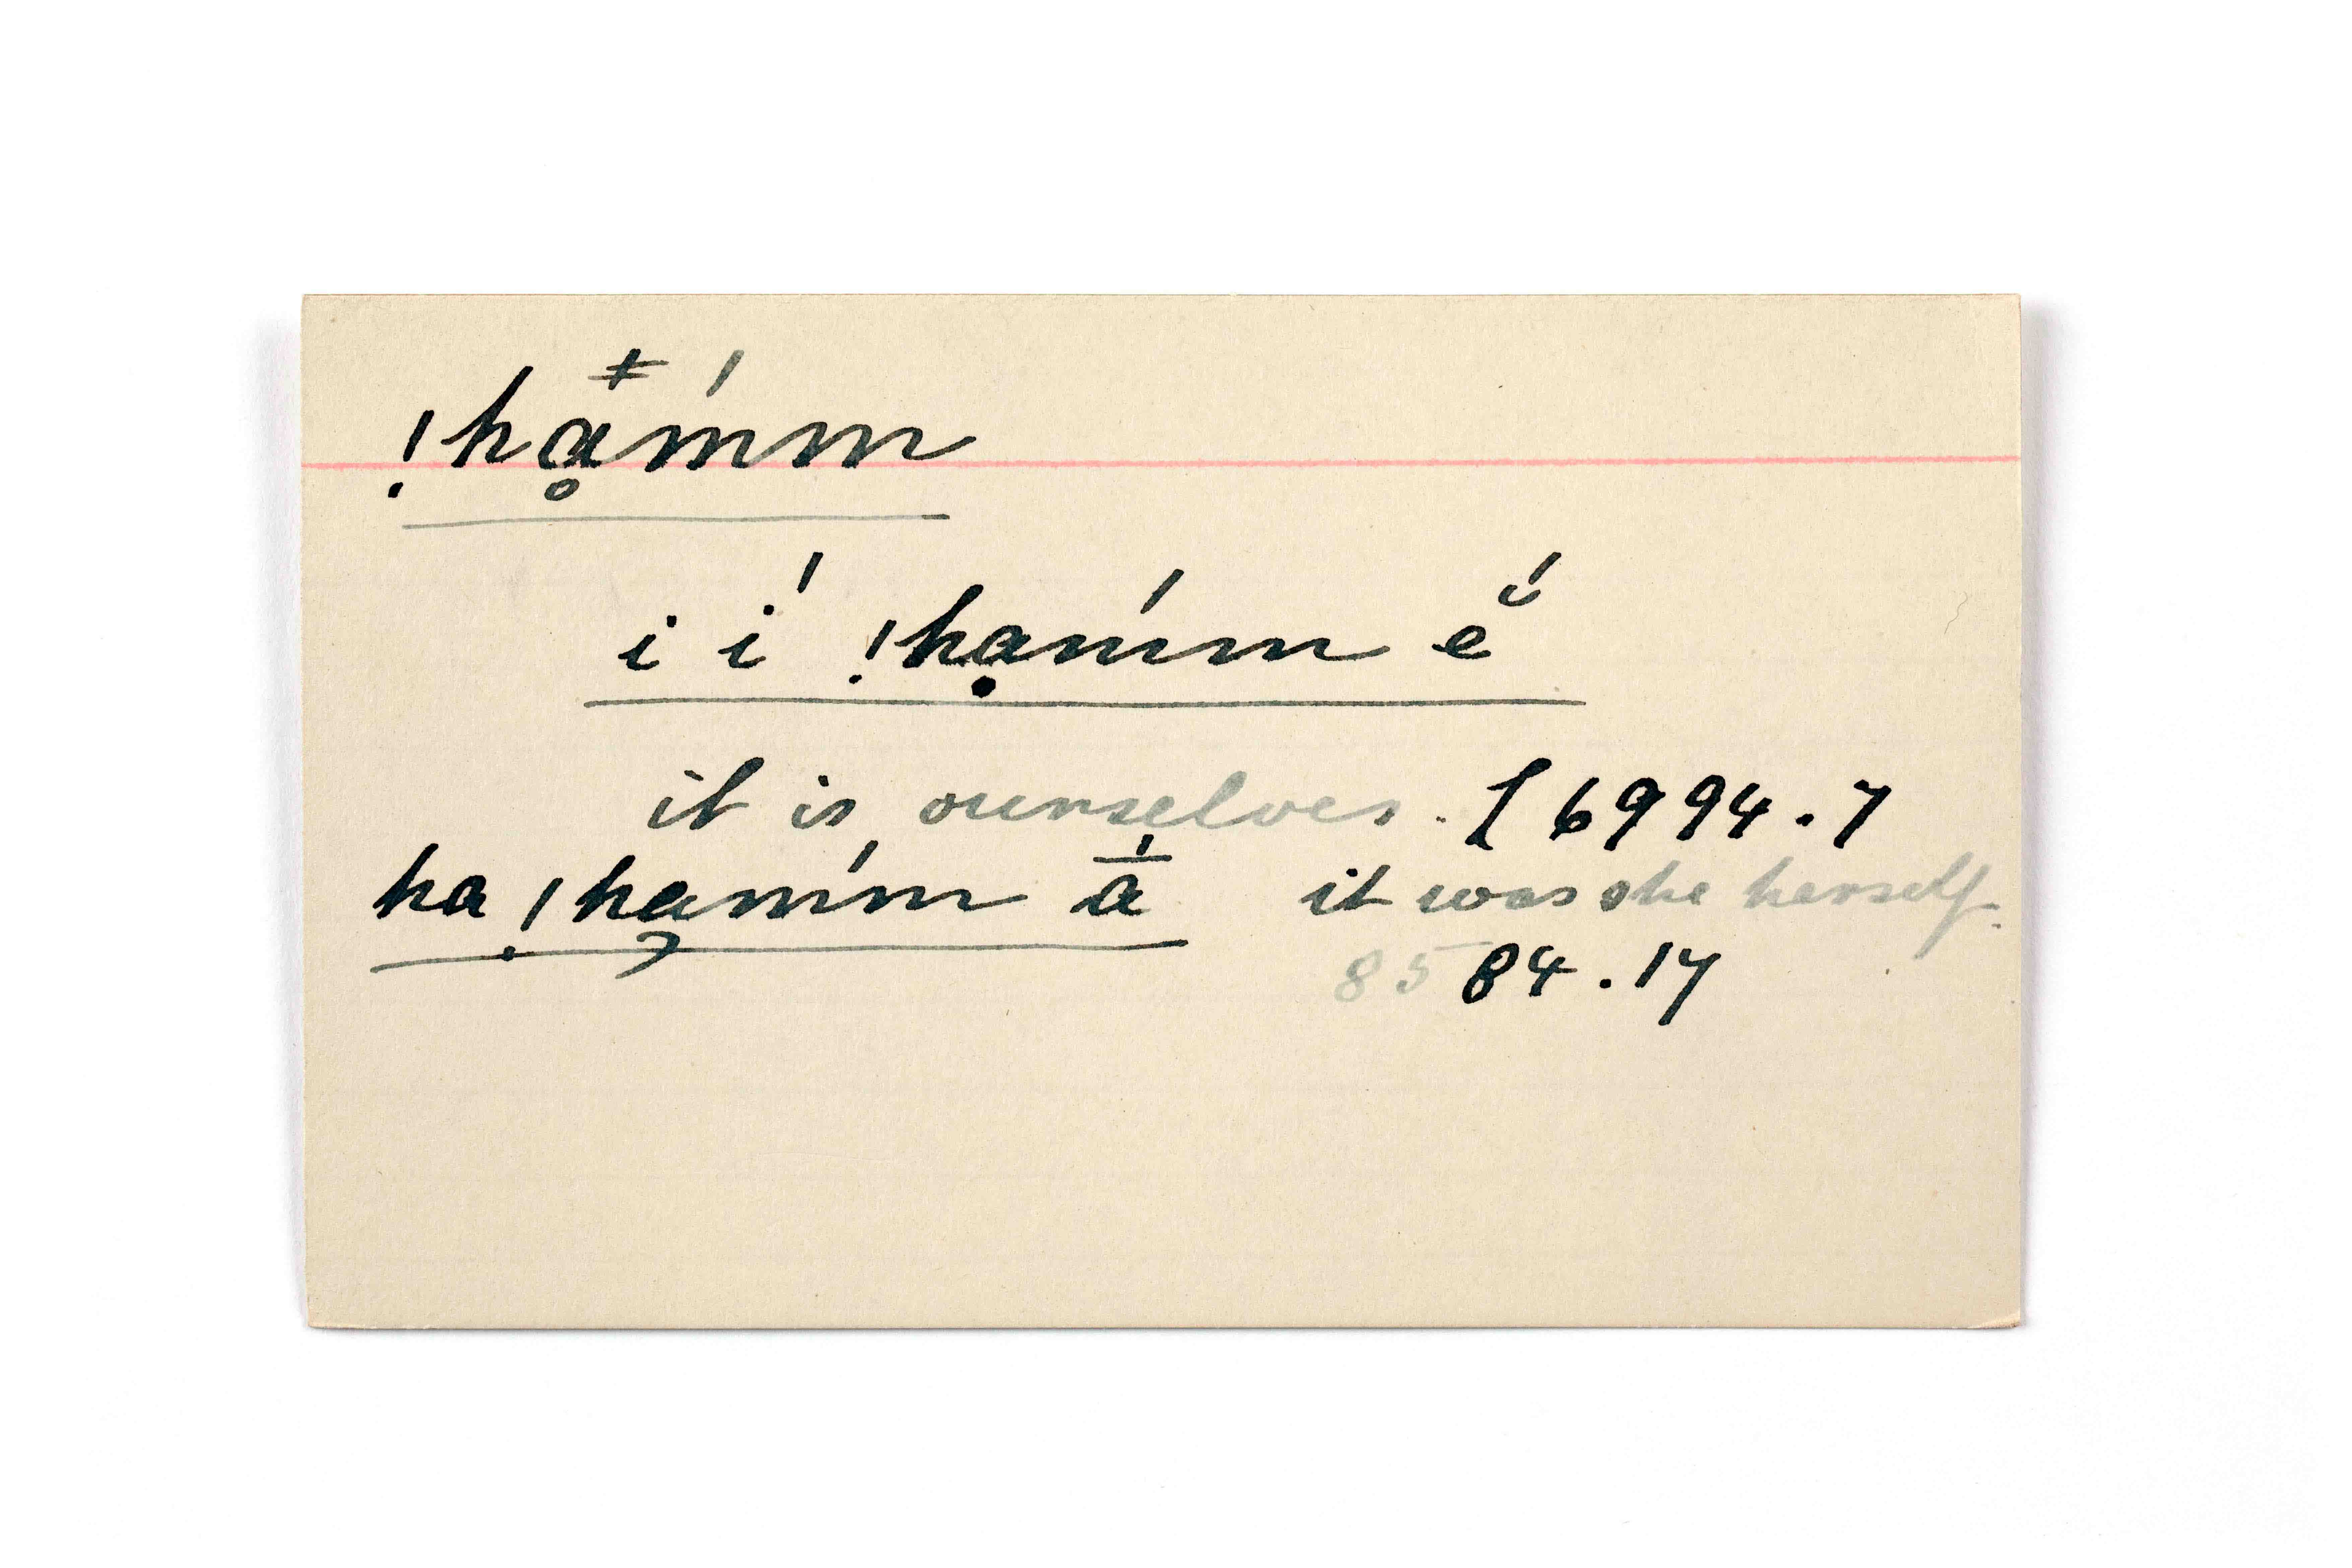 !hạḿm
i í !hạḿm ĕ́
it is ourselves. L 6994.7
ha !hạḿm ā́ it was she herself.
8584.17